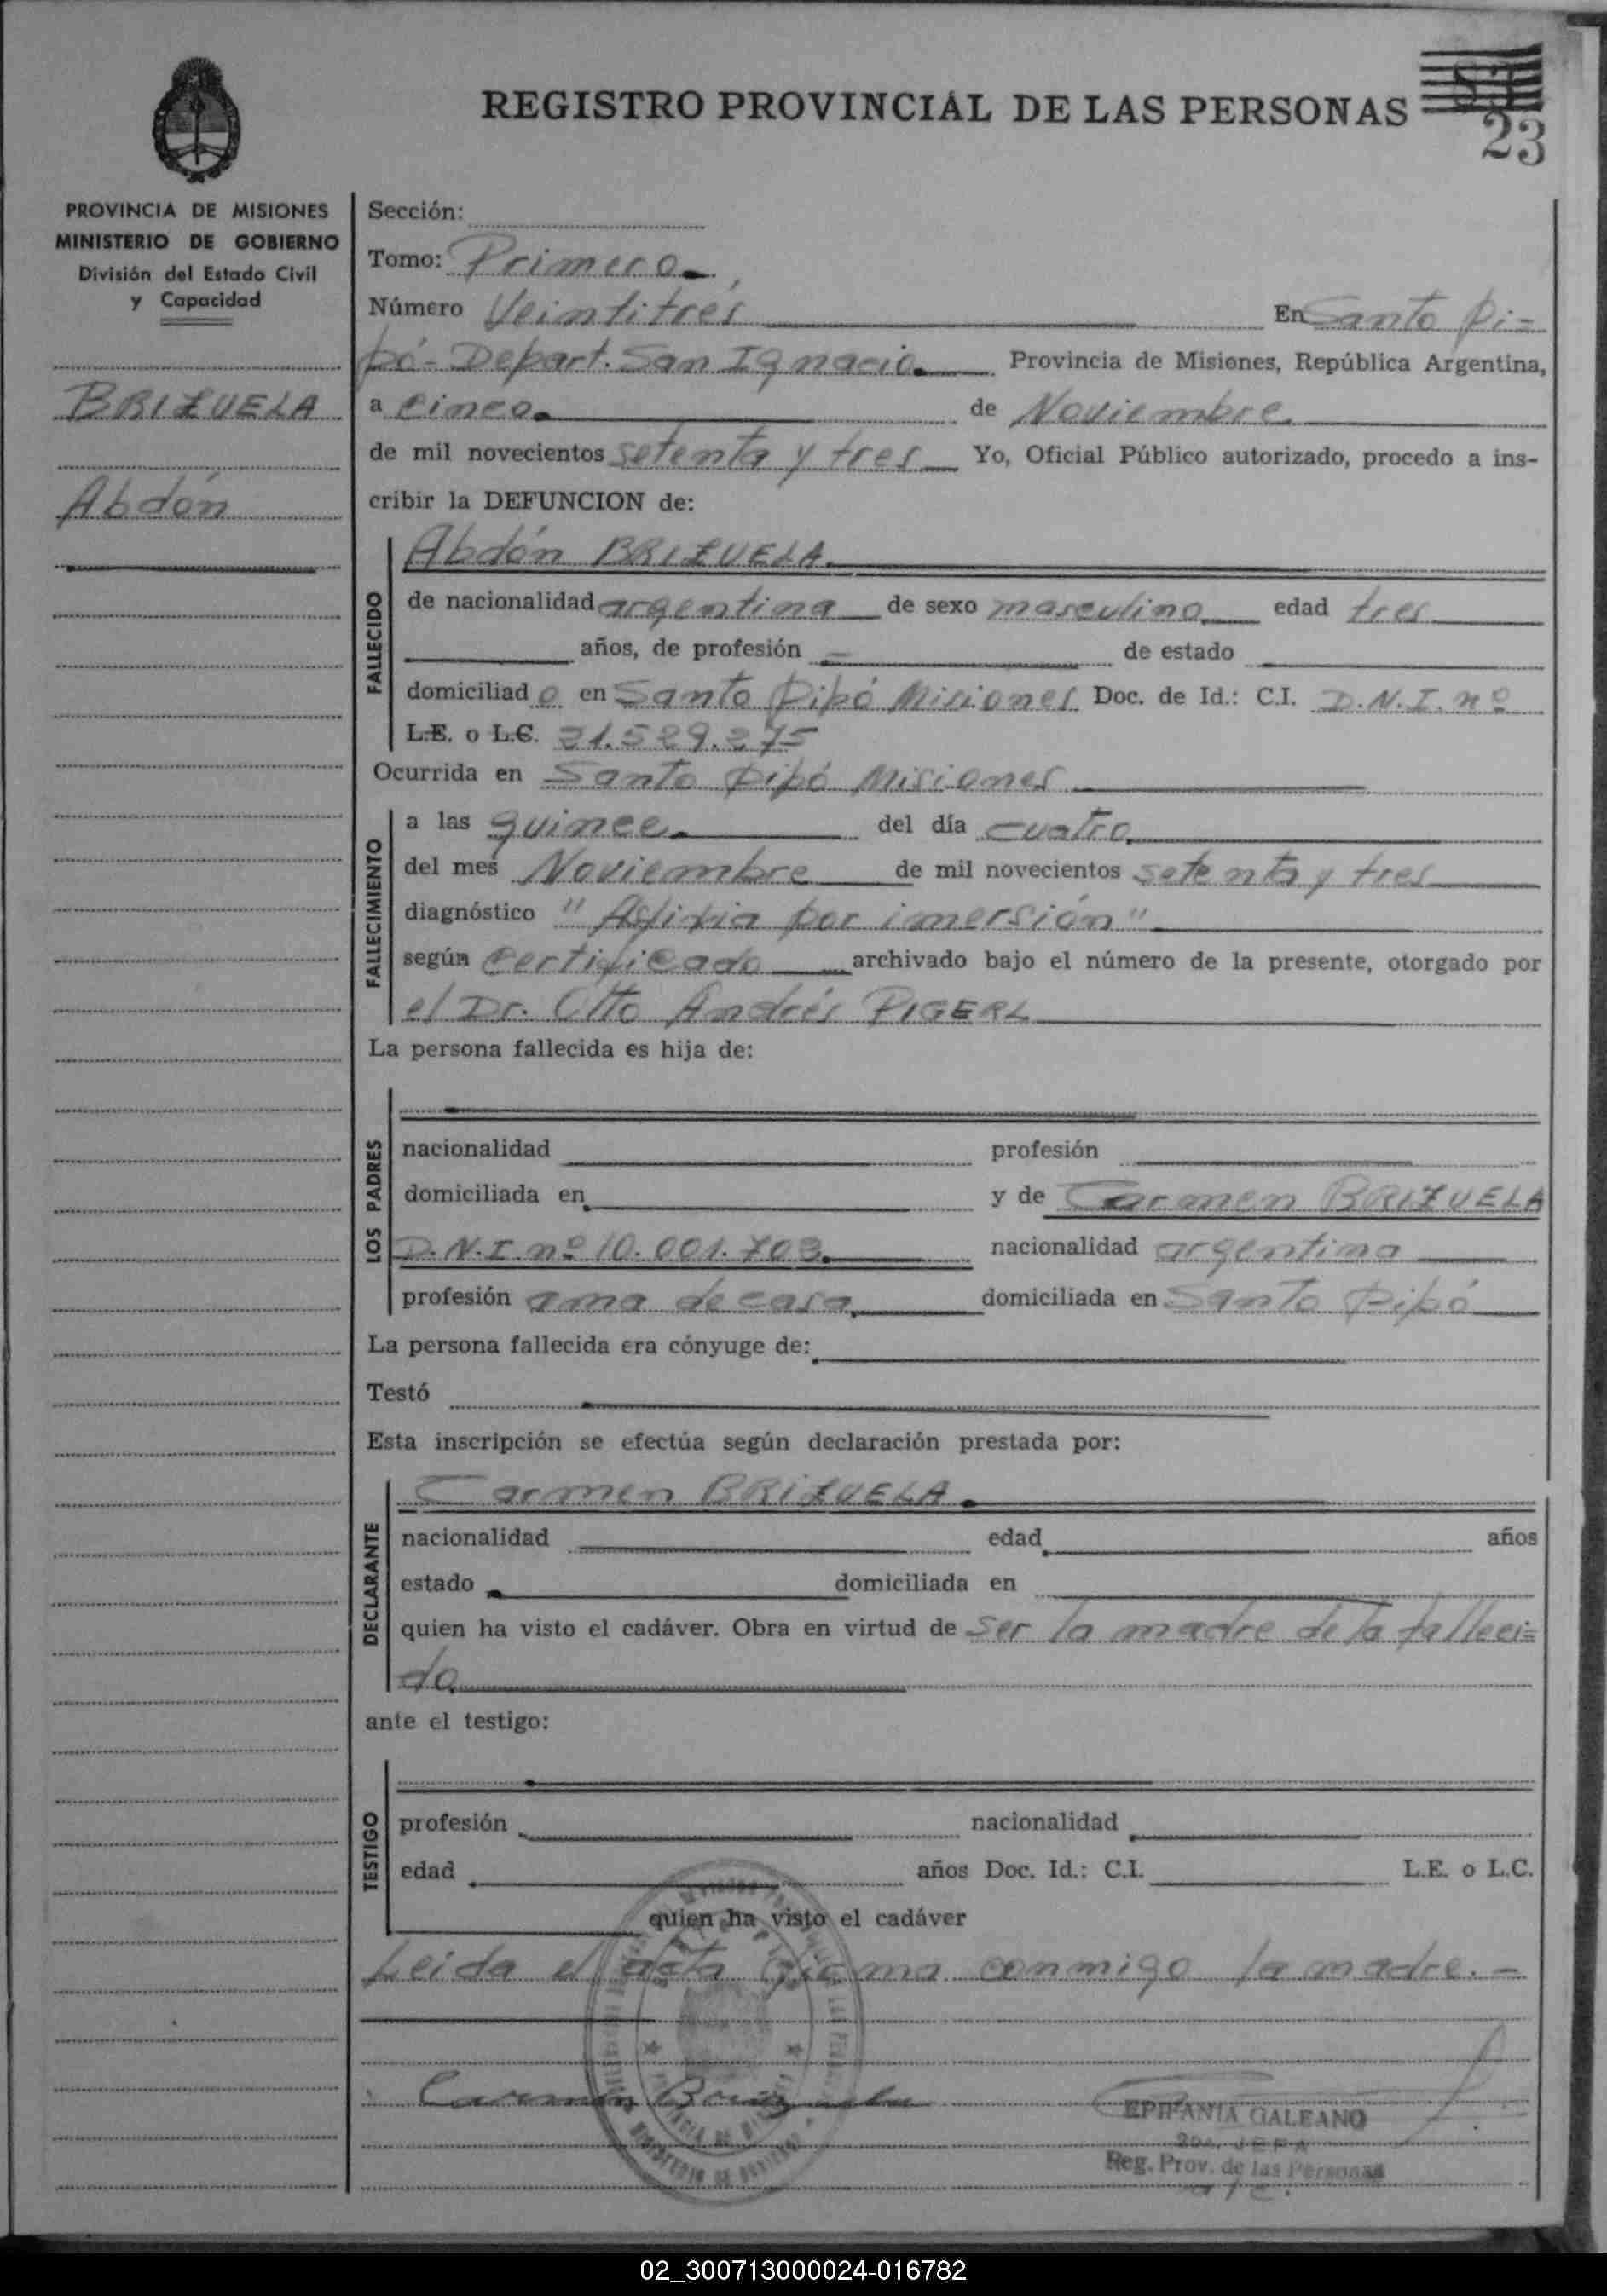 REGISTRO PROVINCIAL DE LAS PERSONAS
23
PROVINCIA DE MISIONES
MINISTERIO DE GOBIERNO
División del Estado Civil
y Capacidad
BRIZUELA
Abdón
Sección:
Tomo: Primero
Número Veintitrés En Santo Pi-
pó- Depart. San Ignacio. Provincia de Misiones, República Argentina,
a cinco. de Noviembre
de mil novecientos setenta y tres Yo, Oficial Público autorizado, procedo a ins-
cribir la DEFUNCION de:
FALLECIDO
Abdón BRIZUELA.
de nacionalidad argentina de sexo masculino edad tres
años, de profesión — de estado
domiciliado en Santo Pipó Misiones Doc. de Id.: C.I. D.N.I. nº
L.E. o L.C. 21.529.275
Ocurrida en Santo Pipó Misiones
FALLECIMIENTO
a las quince. del día cuatro
del mes Noviembre de mil novecientos setenta y tres
diagnóstico "Asfixia por imersión"
según certificado archivado bajo el número de la presente, otorgado por
el Dr. Otto Andrés PIGERL
La persona fallecida es hija de:
LOS PADRES
nacionalidad profesión
domiciliada en y de Carmen BRIZUELA
D.N.I. nº 10.001.703. nacionalidad argentina
profesión ama de casa domiciliada en Santo Pipó
La persona fallecida era cónyuge de:
Testó
Esta inscripción se efectúa según declaración prestada por:
DECLARANTE
Carmen BRIZUELA.
nacionalidad edad años
estado domiciliada en
quien ha visto el cadáver. Obra en virtud de ser la madre de la falleci=
da
ante el testigo:
TESTIGO
profesión nacionalidad
edad años Doc. Id.: C.I. L.E. o L.C.
quien ha visto el cadáver
Leida el acta firma conmigo la madre.-
Carmen Brizuela
EPIFANIA GALEANO
JEFA
Reg. Prov. de las Personas
a/c.
02_300713000024-016782